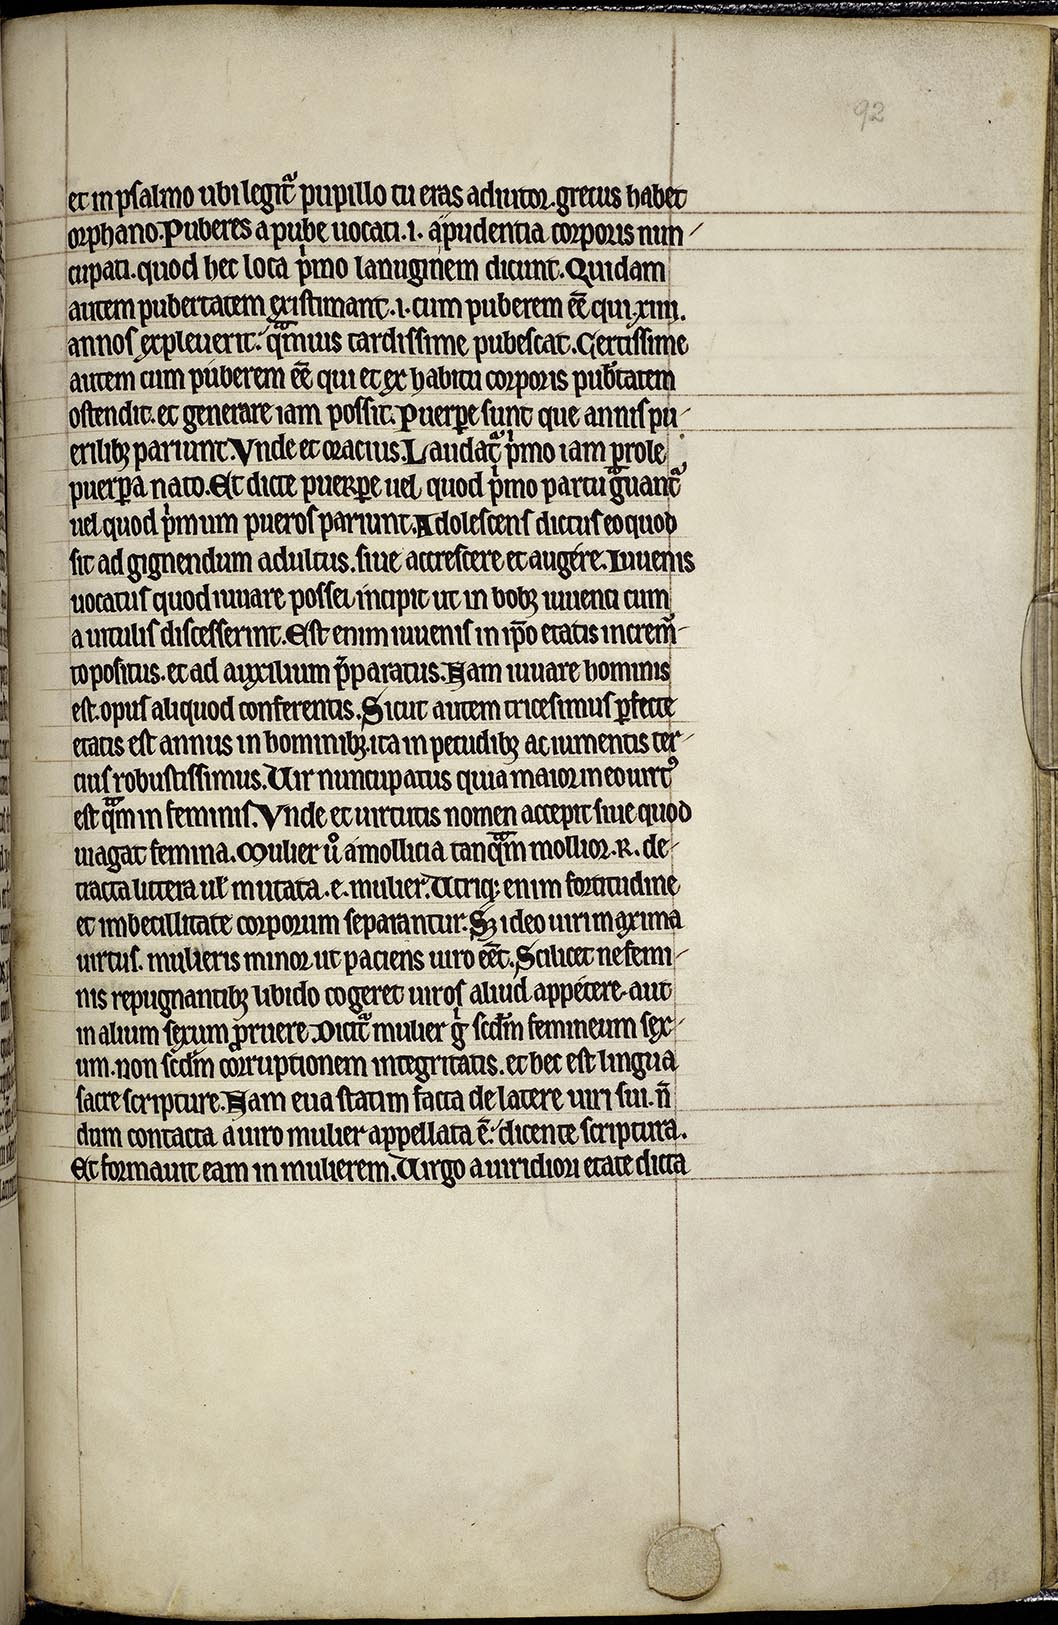 92
et in psalmo ubi legit᷑ pupillo tu eras adiutor. grecus habet
orphano. Puberes a pube uocati .i. a pudentia corporis nun
cupati. quod hec loca p̍mo lanuginem dicunt. Quidam
autem pubertatem existimant .i. cum puberem ēē qui .xiiii.
annos expleuerit. qͣmuis tardissime pubescat. Certissime
autem cum puberem ēē qui et ex habitu corporis pub̄tatem
ostendit. et generare iam possit. Puerꝑe sunt que annis pu
erilibꝫ pariunt. Vnde et oracius. Laudat᷑ p̍mo iam prole
puerꝑa nato. Et dicte puerꝑe uel quod p̍mo partu gͣuant᷑
uel quod p̍mum pueros pariunt. Adolescens dictus eo quod
sit ad gignendum adultus. siue accrescere et augere. Iuuenis
uocatus quod iuuare posse incipit ut in bobꝫ iuuenci cum
a uitulis discesserint. Est enim iuuenis in ip̄o etatis increm̄
to positus. et ad auxilium p̄paratus. Nam iuuare hominis
est. opus aliquod conferentis. Sicut autem tricesimus ꝑfecte
etatis est annus in hominibꝫ. ita in pecudibꝫ ac iumentis ter
cius robustissimus. Uir nuncupatus quia maior in eo uirtꝰ
est qͣm in feminis. Vnde et uirtutis nomen accepit siue quod
ui agat femina. Mulier u̾o a mollicia tanqͣm mollior .R. de
tracta littera ul̄ mutata .e. mulier. Utriqꝫ enim fortitudine
et imbecillitate corporum separantur. Sꝫ ideo uiri maxima
uirtus. mulieris minor ut paciens uiro eēt. Scilicet ne femi
nis repugnantibꝫ libido cogeret uiros aliud appetere. aut
in alium sexum ꝓruere. Dicit᷑ mulier gͥ scd̄m femineum sex
um. non scd̄m corruptionem integritatis. et hec est lingua
sacre scripture. Nam eua statim facta de latere uiri sui. n̄
dum contacta a uiro mulier appellata ē. dicente scriptura.
Et formauit eam in mulierem. Uirgo a uiridiori etate dicta